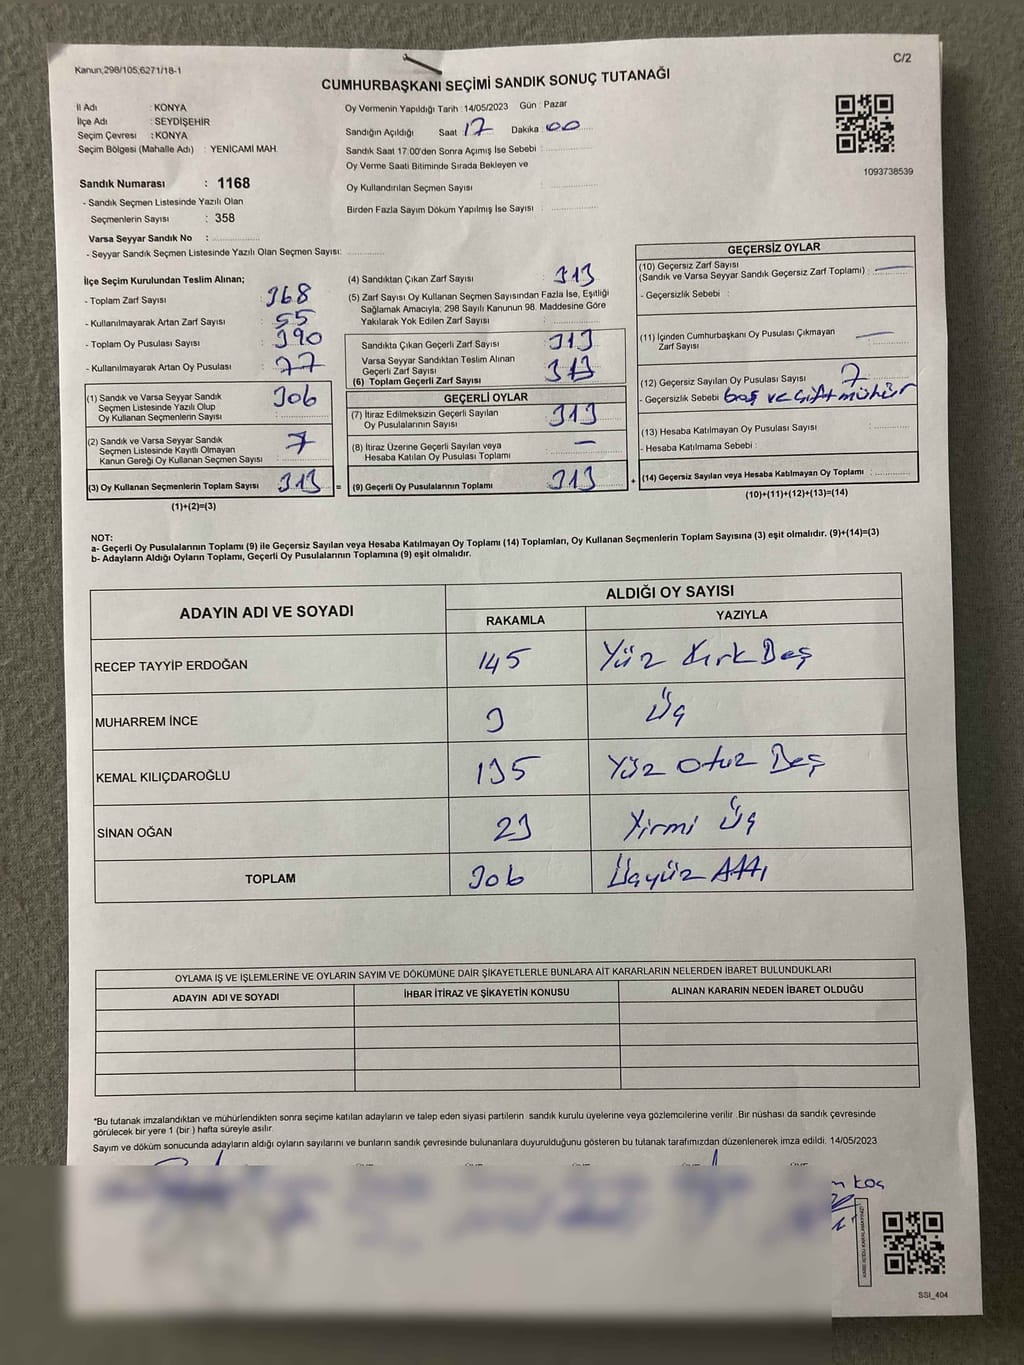 Kanun;298/105,6271/18-1
C/2
CUMHURBAŞKANI SEÇİMİ SANDIK SONUÇ TUTANAĞI
İl Adı : KONYA
İlçe Adı : SEYDİŞEHİR
Seçim Çevresi : KONYA
Seçim Bölgesi (Mahalle Adı) : YENİCAMİ MAH.
Sandık Numarası : 1168
- Sandık Seçmen Listesinde Yazılı Olan
Seçmenlerin Sayısı : 358
Varsa Seyyar Sandık No :
- Seyyar Sandık Seçmen Listesinde Yazılı Olan Seçmen Sayısı:
Oy Vermenin Yapıldığı Tarih : 14/05/2023 Gün : Pazar
Sandığın Açıldığı Saat 17 Dakika : 00
Sandık Saat 17:00'den Sonra Açımış İse Sebebi :
Oy Verme Saati Bitiminde Sırada Bekleyen ve
Oy Kullandırılan Seçmen Sayısı :
Birden Fazla Sayım Döküm Yapılmış İse Sayısı :
1093738539
İlçe Seçim Kurulundan Teslim Alınan;
- Toplam Zarf Sayısı : 368
- Kullanılmayarak Artan Zarf Sayısı : 55
- Toplam Oy Pusulası Sayısı : 390
- Kullanılmayarak Artan Oy Pusulası : 77
(1) Sandık ve Varsa Seyyar Sandık
Seçmen Listesinde Yazılı Olup
Oy Kullanan Seçmenlerin Sayısı : 306
(2) Sandık ve Varsa Seyyar Sandık
Seçmen Listesinde Kayıtlı Olmayan
Kanun Gereği Oy Kullanan Seçmen Sayısı : 7
(3) Oy Kullanan Seçmenlerin Toplam Sayısı : 313 =
(1)+(2)=(3)
(4) Sandıktan Çıkan Zarf Sayısı : 313
(5) Zarf Sayısı Oy Kullanan Seçmen Sayısından Fazla İse, Eşitliği
Sağlamak Amacıyla, 298 Sayılı Kanunun 98. Maddesine Göre
Yakılarak Yok Edilen Zarf Sayısı :
Sandıkta Çıkan Geçerli Zarf Sayısı : 313
Varsa Seyyar Sandıktan Teslim Alınan
Geçerli Zarf Sayısı :
(6) Toplam Geçerli Zarf Sayısı 313
GEÇERLİ OYLAR
(7) İtiraz Edilmeksizin Geçerli Sayılan
Oy Pusulalarının Sayısı : 313
(8) İtiraz Üzerine Geçerli Sayılan veya
Hesaba Katılan Oy Pusulası Toplamı : —
(9) Geçerli Oy Pusulalarının Toplamı : 313 +
GEÇERSİZ OYLAR
(10) Geçersiz Zarf Sayısı
(Sandık ve Varsa Seyyar Sandık Geçersiz Zarf Toplamı) : —
- Geçersizlik Sebebi :
(11) İçinden Cumhurbaşkanı Oy Pusulası Çıkmayan
Zarf Sayısı : —
(12) Geçersiz Sayılan Oy Pusulası Sayısı : 7
- Geçersizlik Sebebi boş ve çift mühür
(13) Hesaba Katılmayan Oy Pusulası Sayısı :
- Hesaba Katılmama Sebebi :
(14) Geçersiz Sayılan veya Hesaba Katılmayan Oy Toplamı :
(10)+(11)+(12)+(13)=(14)
NOT:
a- Geçerli Oy Pusulalarının Toplamı (9) ile Geçersiz Sayılan veya Hesaba Katılmayan Oy Toplamı (14) Toplamları, Oy Kullanan Seçmenlerin Toplam Sayısına (3) eşit olmalıdır. (9)+(14)=(3)
b- Adayların Aldığı Oyların Toplamı, Geçerli Oy Pusulalarının Toplamına (9) eşit olmalıdır.
ADAYIN ADI VE SOYADI ALDIĞI OY SAYISI
RAKAMLA YAZIYLA
RECEP TAYYİP ERDOĞAN 145 Yüz Kırk Beş
MUHARREM İNCE 3 Üç
KEMAL KILIÇDAROĞLU 135 Yüz Otuz Beş
SİNAN OĞAN 23 Yirmi Üç
TOPLAM 306 Üçyüz Altı
OYLAMA İŞ VE İŞLEMLERİNE VE OYLARIN SAYIM VE DÖKÜMÜNE DAİR ŞİKAYETLERLE BUNLARA AİT KARARLARIN NELERDEN İBARET BULUNDUKLARI
ADAYIN ADI VE SOYADI İHBAR İTİRAZ VE ŞİKAYETİN KONUSU ALINAN KARARIN NEDEN İBARET OLDUĞU
*Bu tutanak imzalandıktan ve mühürlendikten sonra seçime katılan adayların ve talep eden siyasi partilerin sandık kurulu üyelerine veya gözlemcilerine verilir. Bir nüshası da sandık çevresinde
görülecek bir yere 1 (bir ) hafta süreyle asılır.
Sayım ve döküm sonucunda adayların aldığı oyların sayılarını ve bunların sandık çevresinde bulunanlara duyurulduğunu gösteren bu tutanak tarafımızdan düzenlenerek imza edildi. 14/05/2023
koç
SSI_404